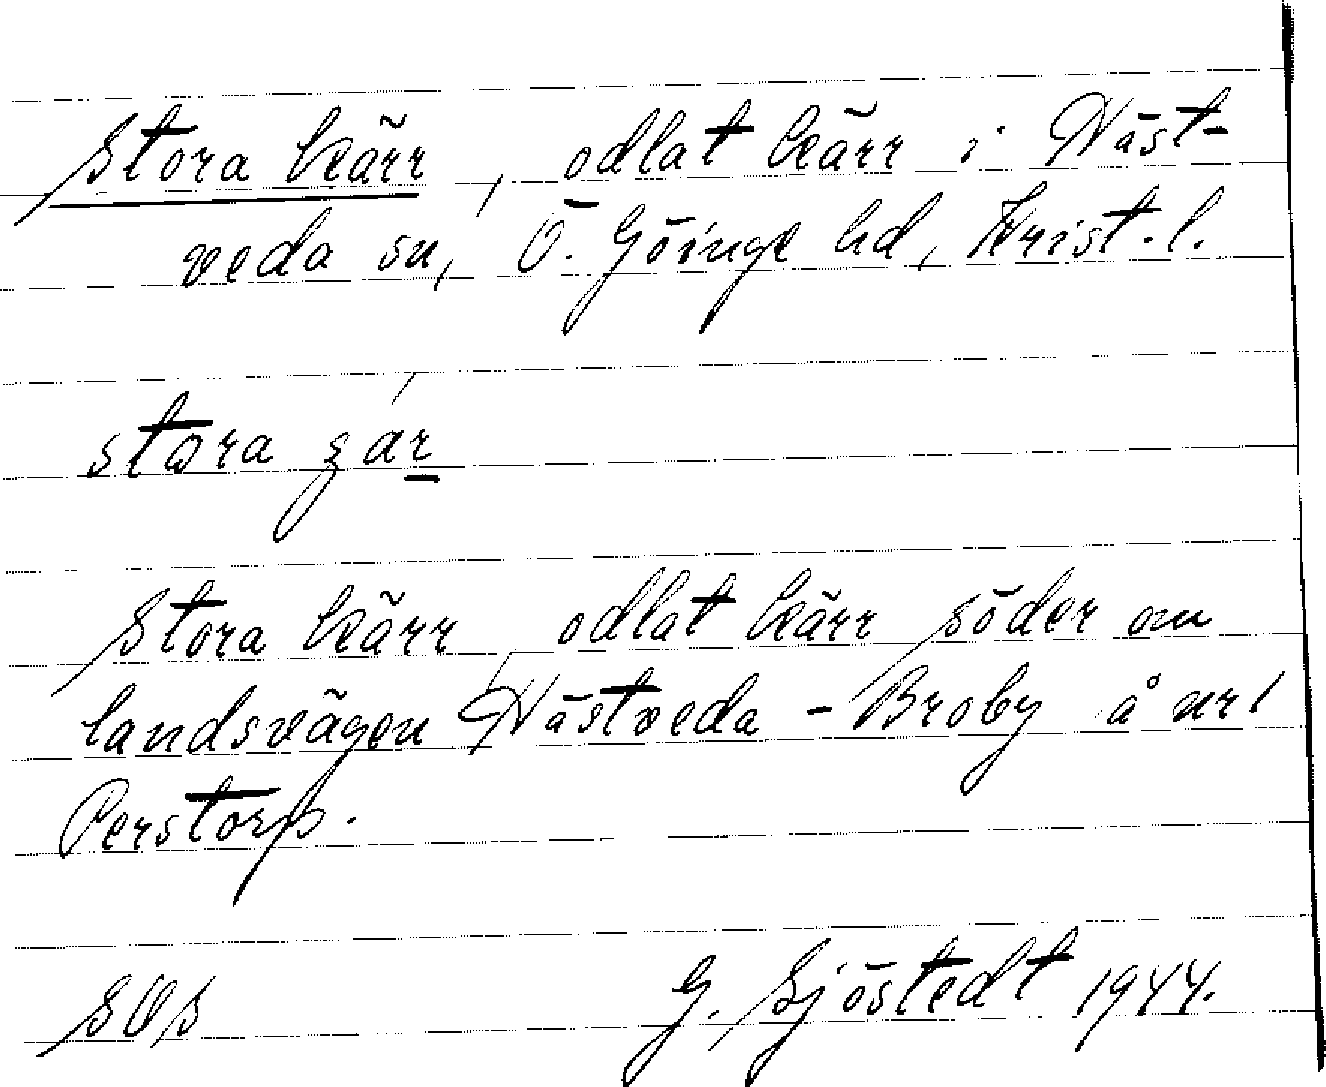 Stora kärr, odlat kärr i Häst-
veda sn, Ö. Göinge hd, Krist. l.
stora
Stora kärr odlat kärr söder om
landsvägen Hästveda - Broby å nr 1
Perstorp.
SOS G. Sjöstedt 1944.